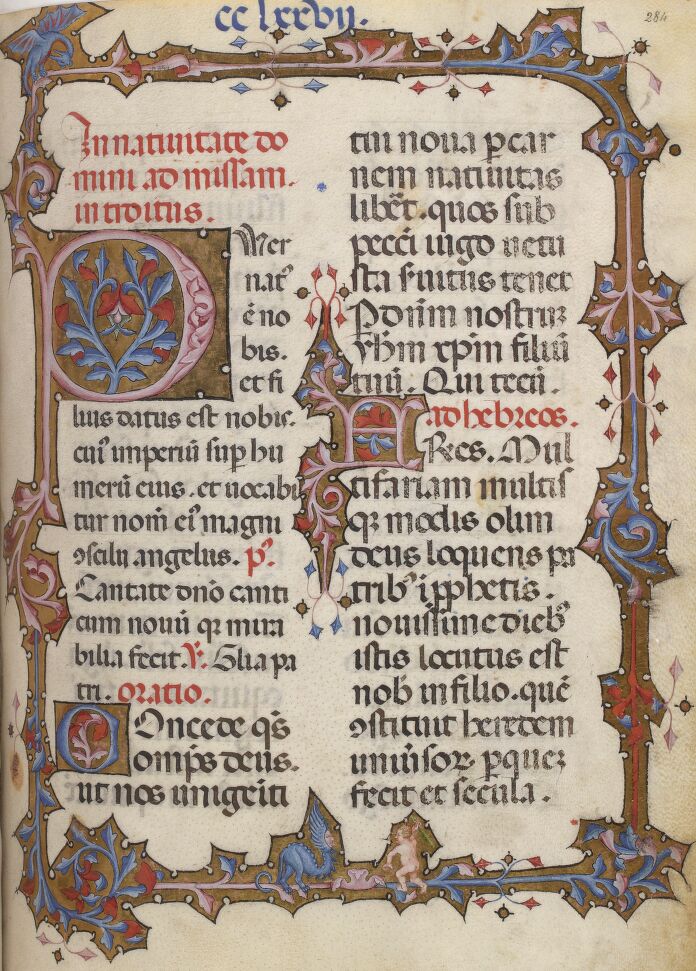 cc lxxvij.
284
In natiuitate do
mini ad missam.
introitus.
PUer
nat᷒
ē no
bis.
et fi
lius datus est nobis.
cui᷒ imperiū sup hu
merū eius. et uocabi
tur nom̄ ei᷒ magni
ꝯsilij angelus. p᷒.
Cantate dn̄o canti
cum nouū qꝛ mira
bilia fecit. V. Glia pa
tri. oratio.
COncede qs̄
omps̄ deus.
ut nos unigeiti
tui noua ꝑ car
nem natiuitas
libēt. quos sub
pecci iugo uetu
sta suitus tenet
P dn̄m nostruꝫ
yhm xpm̄ filiū
tuū. Qui tecū.
ad hebreos.
FRes. Mul
tifariam multis
qꝫ modis olim
deus loquens pa
trib᷒ i ꝓphetis.
nouissime dieb᷒
istis locutus est
nob in filio. quē
ꝯstituit heredem
uniūsoꝝ. ꝑ queꝫ
fecit et secula.